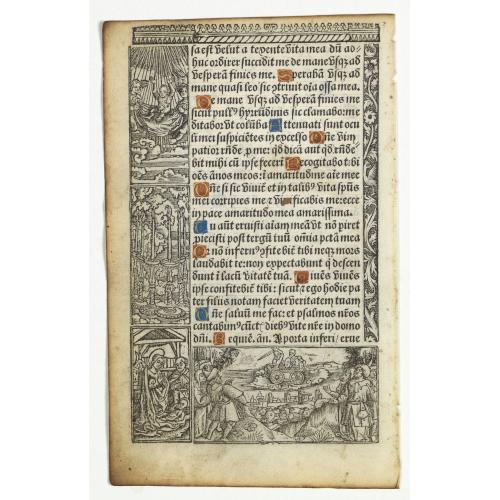 sa est velut a texente vita mea dū ad-
huc ordirer succidit me de mane vsqȝ ad
vesperā finies me. Sperabā vsqȝ ad
mane quasi leo sic ɔtriuit oīa ossa mea.
De mane vsqȝ ad vesperā finies me
sicut pullꝰ hyrūdinis sic clamabo: me
ditabor vt colūba Attenuati sunt ocu
li mei suspiciētes in excelso Dñe vim
patior rñde ꝓ me: qd dicā aut qd rñde
bit mihi cū ipse fecerī Recogitabo tibi
oēs ānos meos: ī amaritudine aīe mee
Dñe si sic viuit̄ et in talibꝰ vita spūs
mei corripies me ⁊ viuificabis me: ecce
in pace amaritudo mea amarissima.
Tu aūt eruisti aīam meā vt nō piret
ꝓiecisti post tergū tuū omīa pctā mea
Qr nō infernꝰ ɔfitebit̄ tibi neqȝ mors
laudabit te: non expectabunt q descen
dunt ī lacū vitatē tuā. Viuēs viuēs
ipse confitebit̄ tibi: sicut ⁊ ego hodie pa
ter filiis notam faciet veritatem tuam
Dñe saluū me fac: et psalmos nr̄os
cantabimꝰ cūct̄ diebꝰ vite nr̄e in domo
dñi. Requiē. añ. A porta inferi / erue